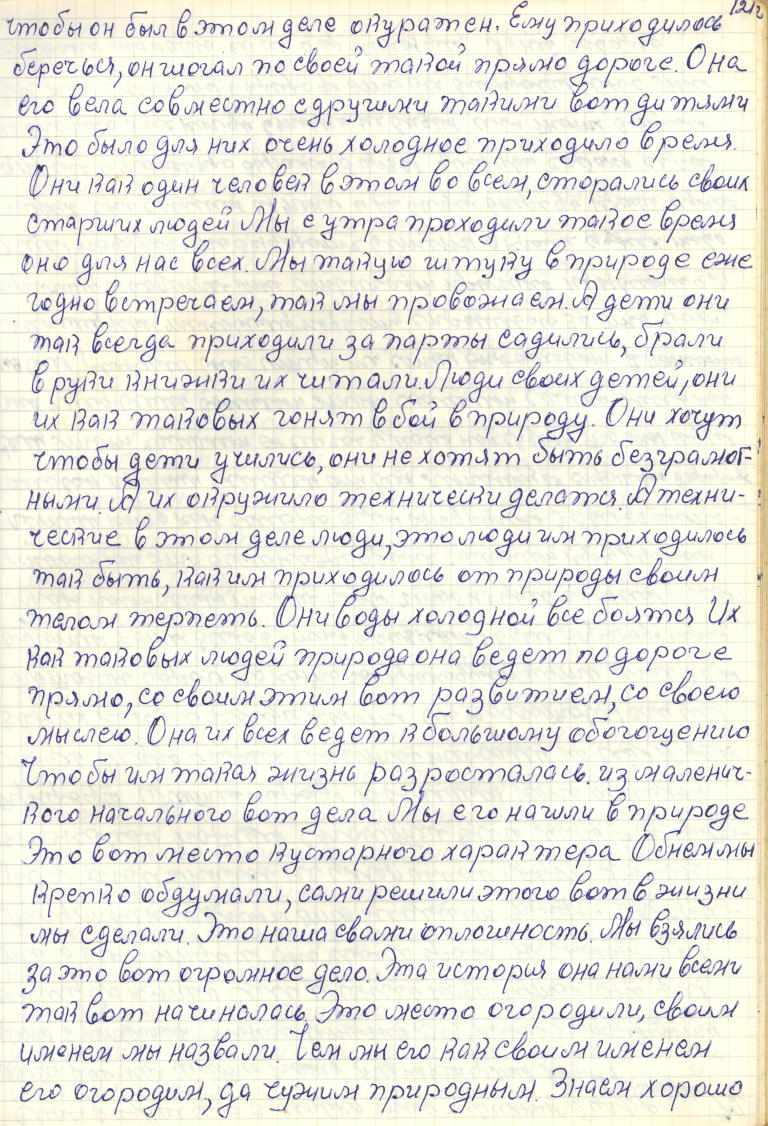 121г
чтобы он был в этом деле окуражен. Ему приходилось
беречься, он шогал по своей такой прямо дороге. Она
его вела совместно с другими такими вот дитями
Это было для них очень холодное приходило время.
Они как один человек в этом во всем, сторались своих
старших людей Мы с утра проходили такое время
оно для нас всех. Мы такую штуку в природе еже
годно встречаем, так мы провожаем. А дети они
так всегда приходили за парты садились, брали
в руки книжки их читали. Люди своих детей, они
их как таковых гонят в бой в природу. Они хочут
чтобы дети учились, они не хотят быть безграмот-
ными. А их окружило технически делатся. А техни-
ческие в этом деле люди, это люди им приходилось
так быть, как им приходилось от природы своим
телом терпеть. Они воды холодной все боятся Их
как таковых людей природа она ведет по дороге
прямо, со своим этим вот развитием, со своею
мыслею. Она их всех ведет к большому обогощению
Чтобы им такая жизнь разросталась. из маленич-
кого начального вот дела Мы его нашли в природе
Это вот место кустарного характера Об нем мы
крепко обдумали, сами решили этого вот в жизни
мы сделали. Это наша с вами оплошность. Мы взялись
за это вот огромное дело. Эта история она нами всеми
так вот начиналась. Это место огородили, своим
именем мы назвали. Чем мы его как своим именем
его огородим, да чужим природным. Знаем хорошо